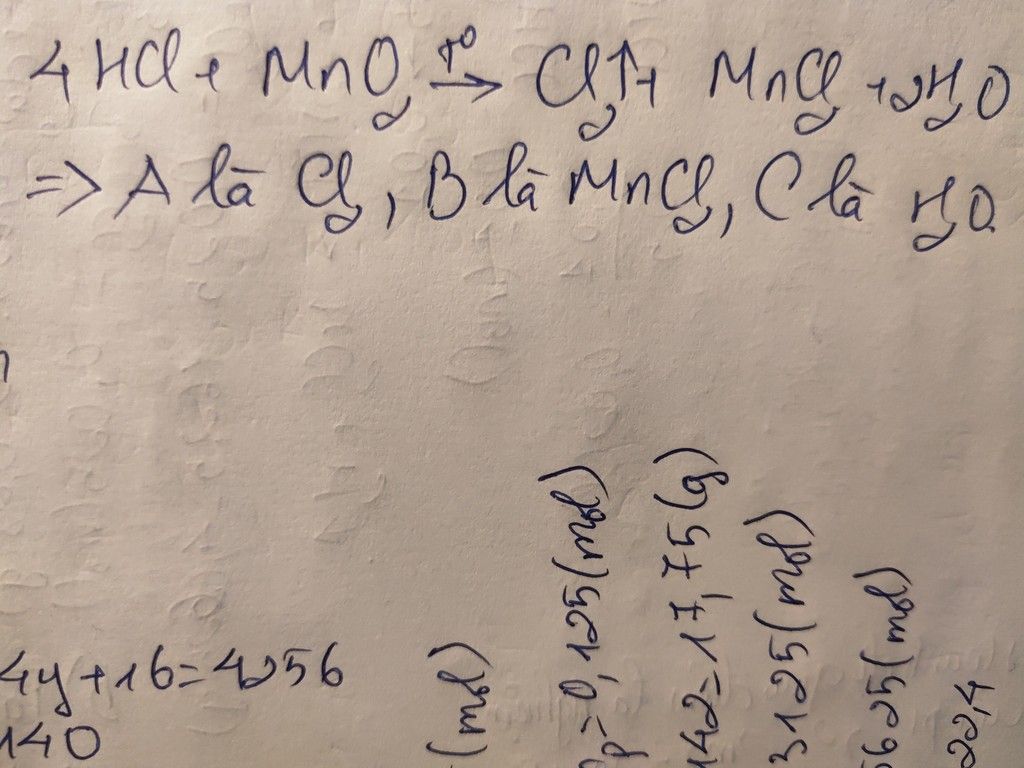 4HCl + MnO₂ →t⁰ Cl₂↑ + MnCl₂ + 2H₂O
=> A là Cl₂, B là MnCl₂, C là H₂O
4y + 16 = 4256
140
(mol)
= 0,125 (mol)
142 = 17,75 (g)
3125 (mol)
5625 (mol)
22,4